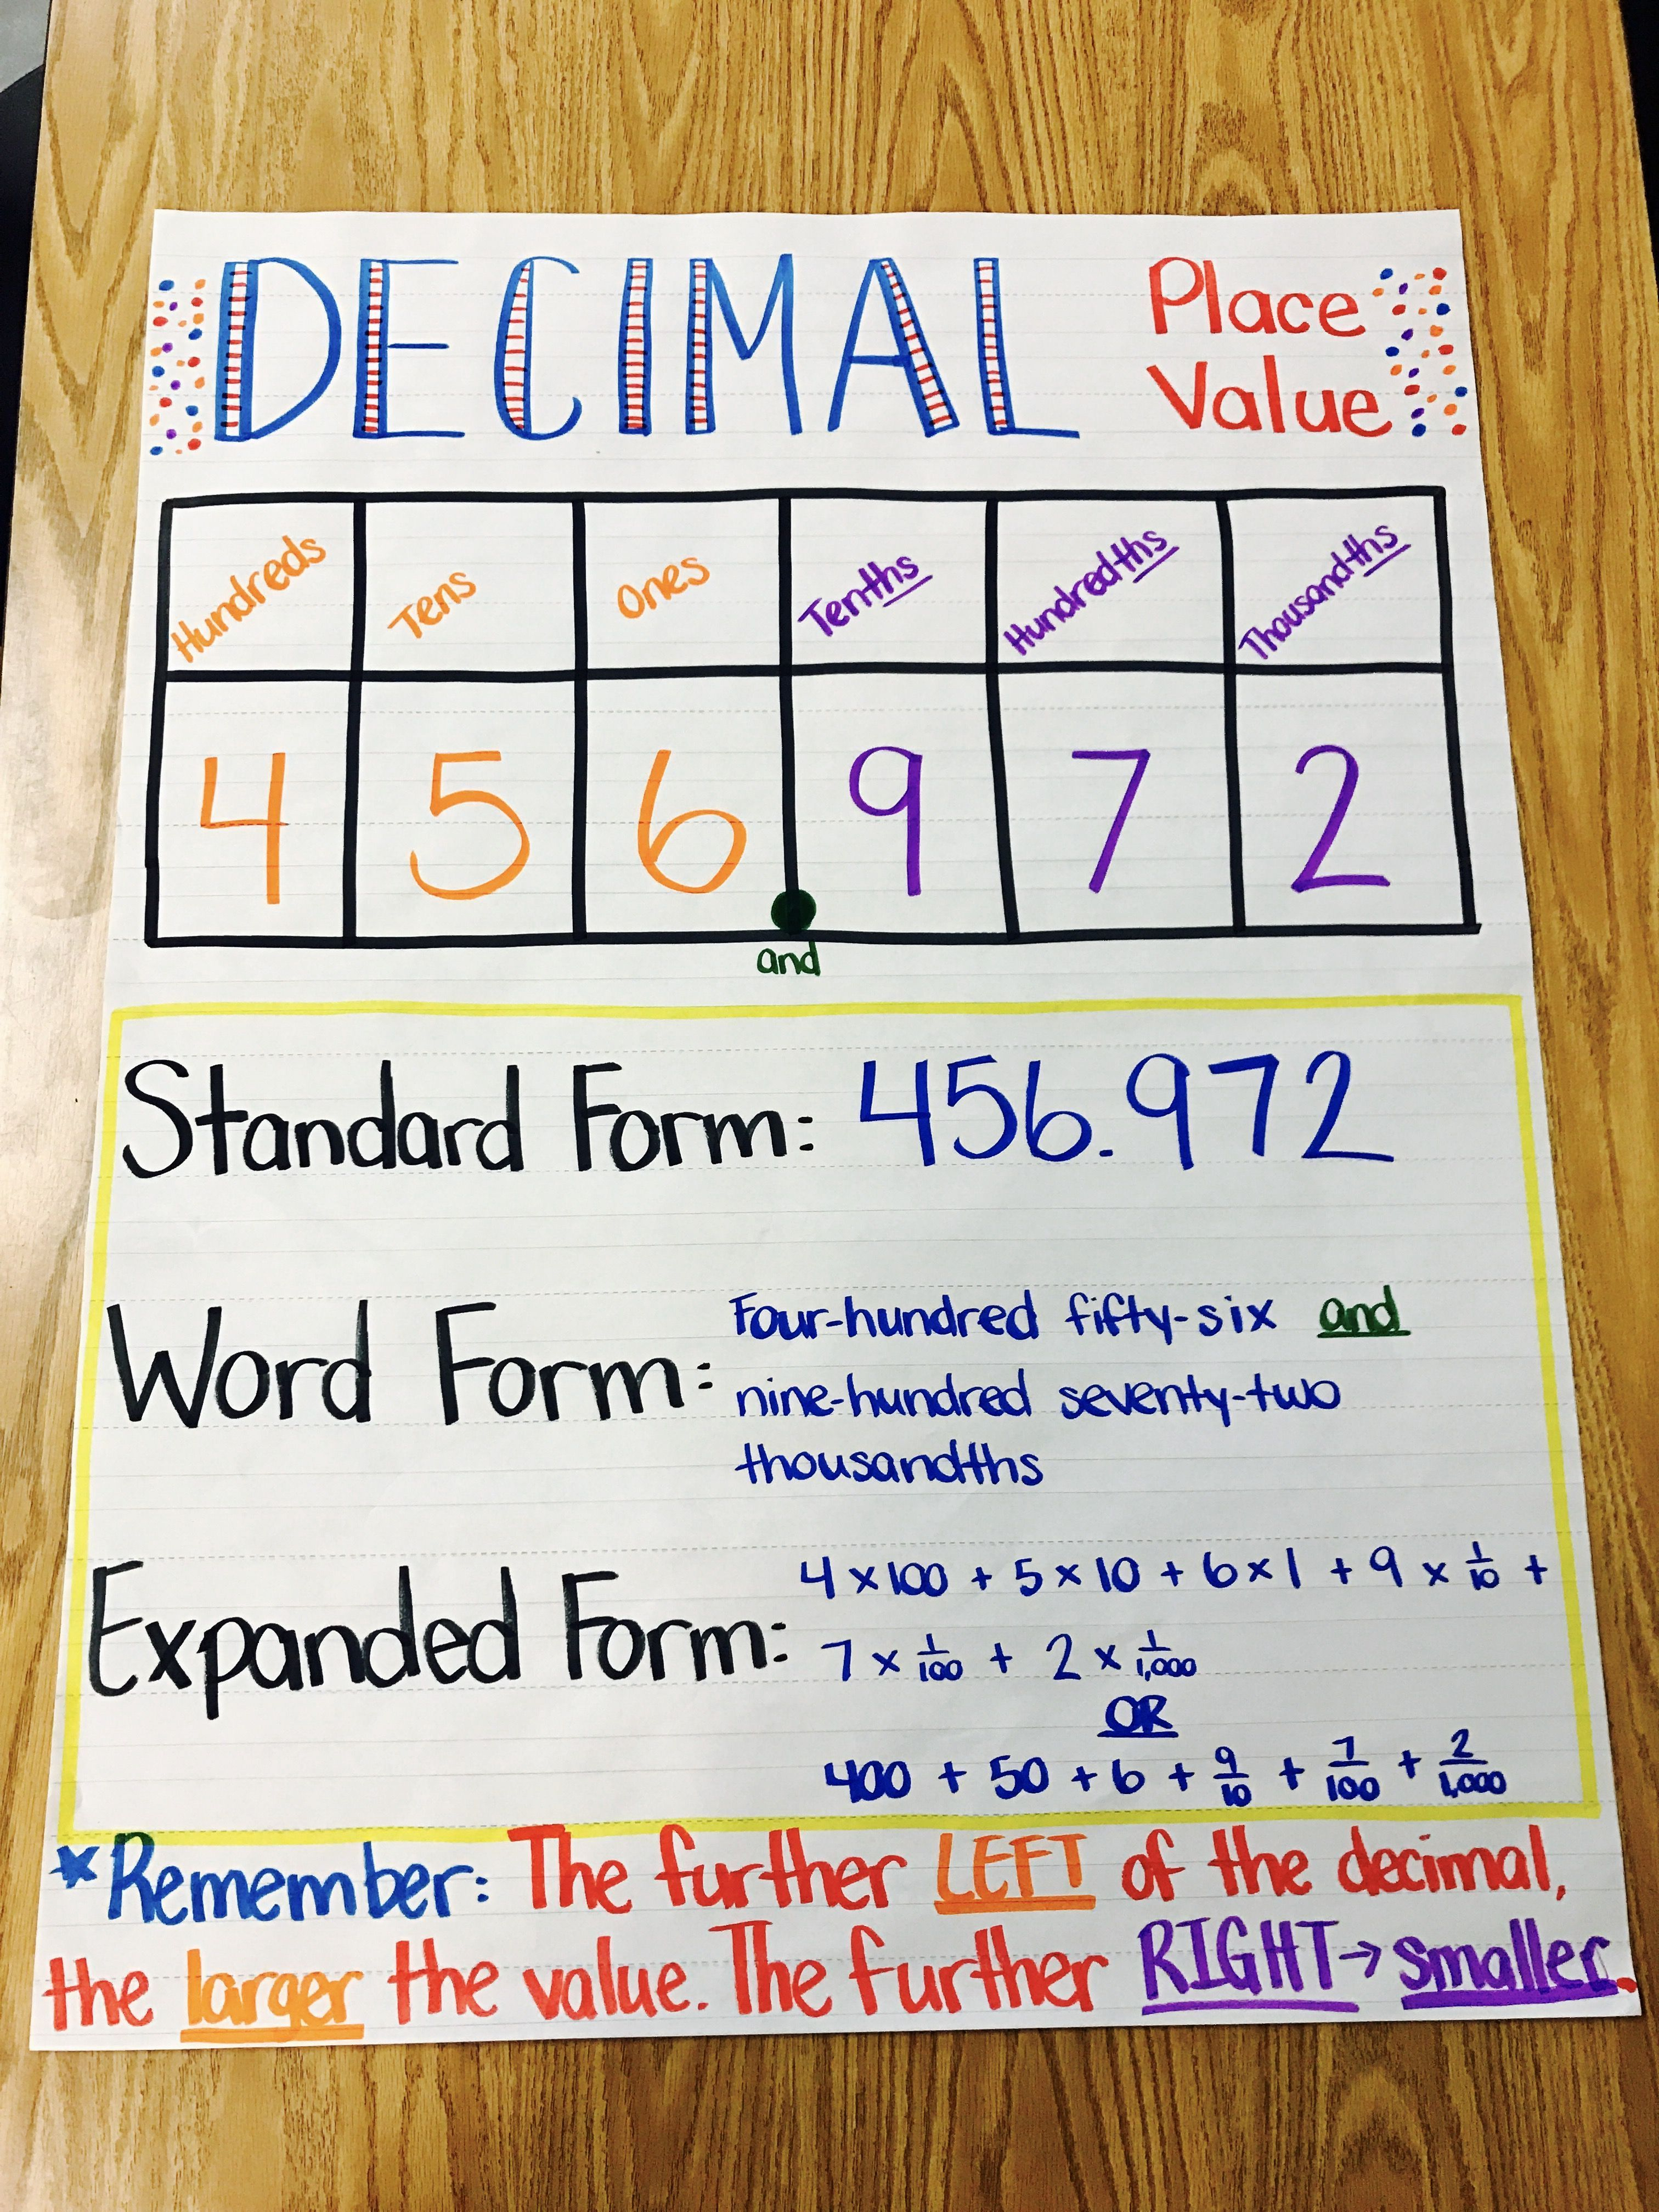 DECIMAL Place Value
Hundreds Tens Ones Tenths Hundredths Thousandths
4 5 6 . 9 7 2
and
Standard Form: 456.972
Word Form: Four-hundred fifty-six and
nine-hundred seventy-two
thousandths
Expanded Form: 4 × 100 + 5 × 10 + 6 × 1 + 9 × 1/10 +
7 × 1/100 + 2 × 1/1,000
OR
400 + 50 + 6 + 9/10 + 7/100 + 2/1,000
*Remember: The further LEFT of the decimal,
the larger the value. The further RIGHT → smaller.